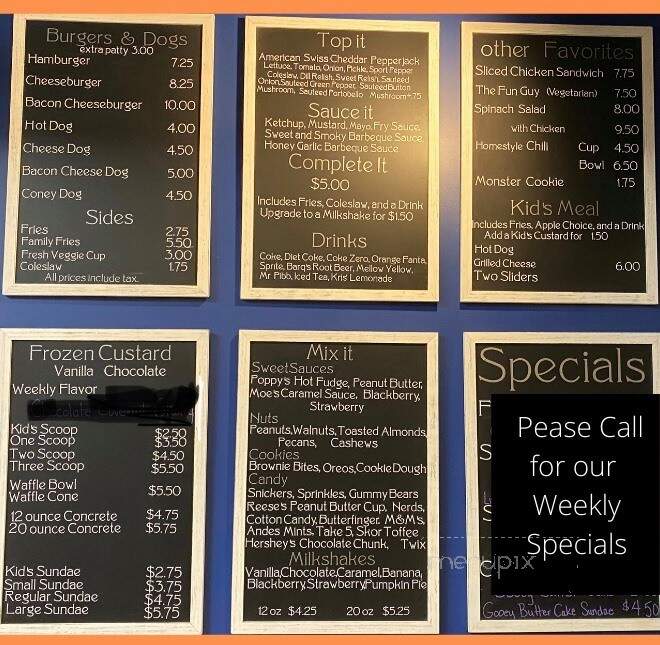 Burgers & Dogs
extra patty 3.00
Hamburger 7.25
Cheeseburger 8.25
Bacon Cheeseburger 10.00
Hot Dog 4.00
Cheese Dog 4.50
Bacon Cheese Dog 5.00
Coney Dog 4.50
Sides
Fries 2.75
Family Fries 5.50
Fresh Veggie Cup 3.00
Coleslaw 1.75
All prices include tax.
Top it
American Swiss Cheddar Pepperjack
Lettuce, Tomato, Onion, Pickle, Sport Pepper
Coleslaw, Dill Relish, Sweet Relish, Sauteed
Onion, Sauteed Green Pepper, Sauteed Button
Mushroom, Sauteed Portobello Mushroom+.75
Sauce it
Ketchup, Mustard, Mayo, Fry Sauce,
Sweet and Smoky Barbeque Sauce
Honey Garlic Barbeque Sauce
Complete It
$5.00
Includes Fries, Coleslaw, and a Drink
Upgrade to a Milkshake for $1.50
Drinks
Coke, Diet Coke, Coke Zero, Orange Fanta,
Sprite, Barq's Root Beer, Mellow Yellow,
Mr. Pibb, Iced Tea, Kris' Lemonade
other Favorites
Sliced Chicken Sandwich 7.75
The Fun Guy (Vegetarian) 7.50
Spinach Salad 8.00
with Chicken 9.50
Homestyle Chili Cup 4.50
Bowl 6.50
Monster Cookie 1.75
Kid's Meal
Includes Fries, Apple Choice, and a Drink
Add a Kid's Custard for 1.50
Hot Dog
Grilled Cheese 6.00
Two Sliders
Frozen Custard
Vanilla Chocolate
Weekly Flavor
Kid's Scoop $2.50
One Scoop $3.50
Two Scoop $4.50
Three Scoop $5.50
Waffle Bowl
Waffle Cone $5.50
12 ounce Concrete $4.75
20 ounce Concrete $5.75
Kid's Sundae $2.75
Small Sundae $3.75
Regular Sundae $4.75
Large Sundae $5.75
Mix it
Sweet Sauces
Poppy's Hot Fudge, Peanut Butter,
Moe's Caramel Sauce, Blackberry,
Strawberry
Nuts
Peanuts, Walnuts, Toasted Almonds,
Pecans, Cashews
Cookies
Brownie Bites, Oreos, Cookie Dough
Candy
Snickers, Sprinkles, Gummy Bears
Reese's Peanut Butter Cup, Nerds,
Cotton Candy, Butterfinger, M&M's,
Andes Mints, Take 5, Skor Toffee
Hershey's Chocolate Chunk, Twix
Milkshakes
Vanilla, Chocolate, Caramel, Banana,
Blackberry, Strawberry, Pumpkin Pie
12 oz $4.25 20 oz $5.25
Specials
Pease Call
for our
Weekly
Specials
Gooey Butter Cake Sundae $4.50
menupix